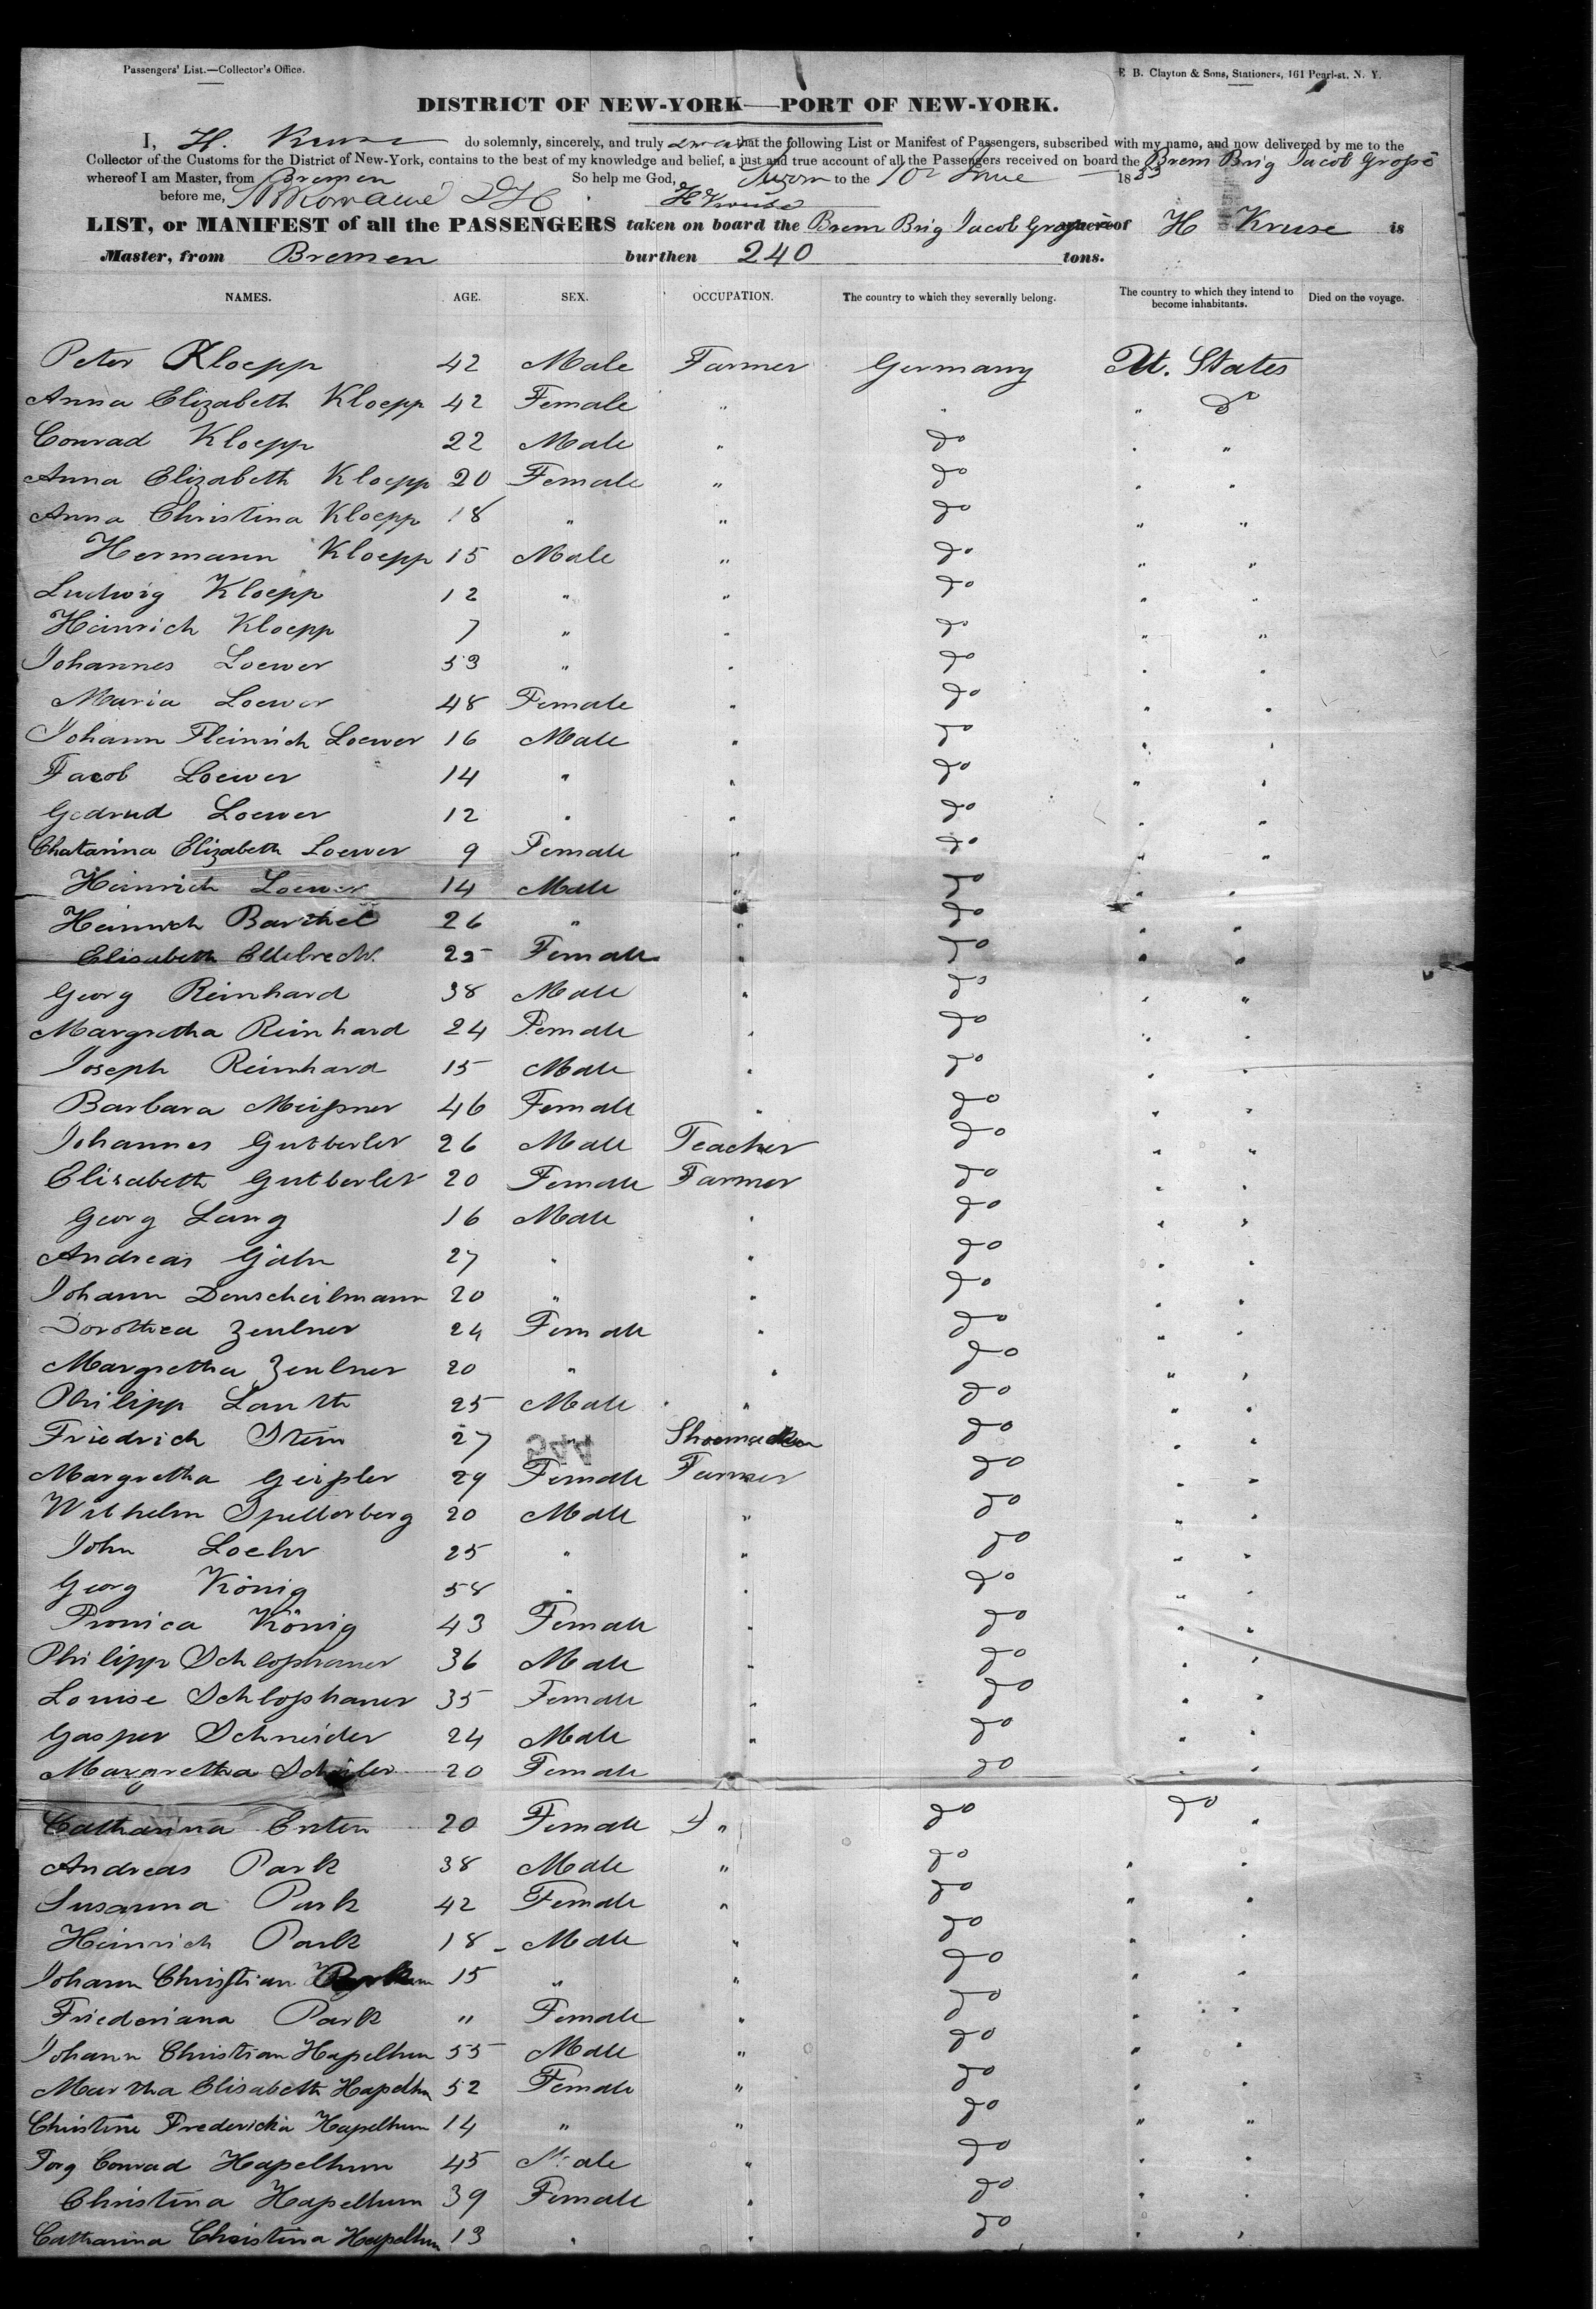 Passengers' List.—Collector's Office.
E. B. Clayton & Sons, Stationers, 161 Pearl-st. N. Y.
DISTRICT OF NEW-YORK—PORT OF NEW-YORK.
I, H. Kruse do solemnly, sincerely, and truly swear that the following List or Manifest of Passengers, subscribed with my name, and now delivered by me to the
Collector of the Customs for the District of New-York, contains to the best of my knowledge and belief, a just and true account of all the Passengers received on board the Brem Brig Jacob Grosse
whereof I am Master, from Bremen So help me God, Sworn to the 10 June 1853
before me, H Kruse
LIST, or MANIFEST of all the PASSENGERS taken on board the Brem Brig Jacob whereof H Kruse is
Master, from Bremen burthen 240 tons.
NAMES. AGE. SEX. OCCUPATION. The country to which they severally belong. The country to which they intend to become inhabitants. Died on the voyage.
Peter Kloepp 42 Male Farmer Germany U. States
Anna Elizabeth Kloepp 42 Female " " " do
Conrad Kloepp 22 Male " do " "
Anna Elizabeth Kloepp 20 Female " do " "
Anna Christina Kloepp 18 " " do " "
Hermann Kloepp 15 Male " do " "
Ludwig Kloepp 12 " " do " "
Heinrich Kloepp 7 " " do " "
Johannes Loewer 53 " " do " "
Maria Loewer 48 Female " do " "
Johann Heinrich Loewer 16 Male " do " "
Jacob Loewer 14 " " do " "
Gedrud Loewer 12 " " do " "
Chatarina Elizabeth Loewer 9 Female " do " "
Heinrich Loewer 14 Male " do " "
Heinrich Barthel 26 " " do " "
Elisabeth Ellebrecht 25 Female " do " "
Georg Reinhard 38 Male " do " "
Margretha Reinhard 24 Female " do " "
Joseph Reinhard 15 Male " do " "
Barbara Meissner 46 Female " do " "
Johannes Gutberler 26 Male Teacher do " "
Elisabeth Gutberler 20 Female Farmer do " "
Georg Lang 16 Male " do " "
Andreas 27 " " do " "
Johann Denscheilmann 20 " " do " "
Dorothea Zeulner 24 Female " do " "
Margretha Zeulner 20 " " do " "
Philipp Lauth 25 Male " do " "
Friedrich Stein 27 " Shoemacker do " "
544
Margretha Geissler 29 Female Farmer do " "
Wilhelm Spellerberg 20 Male " do " "
John Loehr 25 " " do " "
Georg König 58 " " do " "
Pronica König 43 Female " do " "
Philipp Schlosshauer 36 Male " do " "
Louise Schlosshauer 35 Female " do " "
Gasper Schneider 24 Male " do " "
Margretha 20 Female " do " "
Catharina Erten 20 Female " do do "
Andreas Park 38 Male " do " "
Susanna Park 42 Female " do " "
Heinrich Park 18 Male " do " "
Johann Christian 15 " " do " "
Friederiana Park " Female " do " "
Johann Christian Hapelhun 55 Male " do " "
Martha Elisabeth Hapelhun 52 Female " do " "
Christine Fredericka Hapelhun 14 " " do " "
Jorg Conrad Hapelhun 45 Male " do " "
Christina Hapelhun 39 Female " do " "
Catharina Christina Hapelhun 13 " " do " "